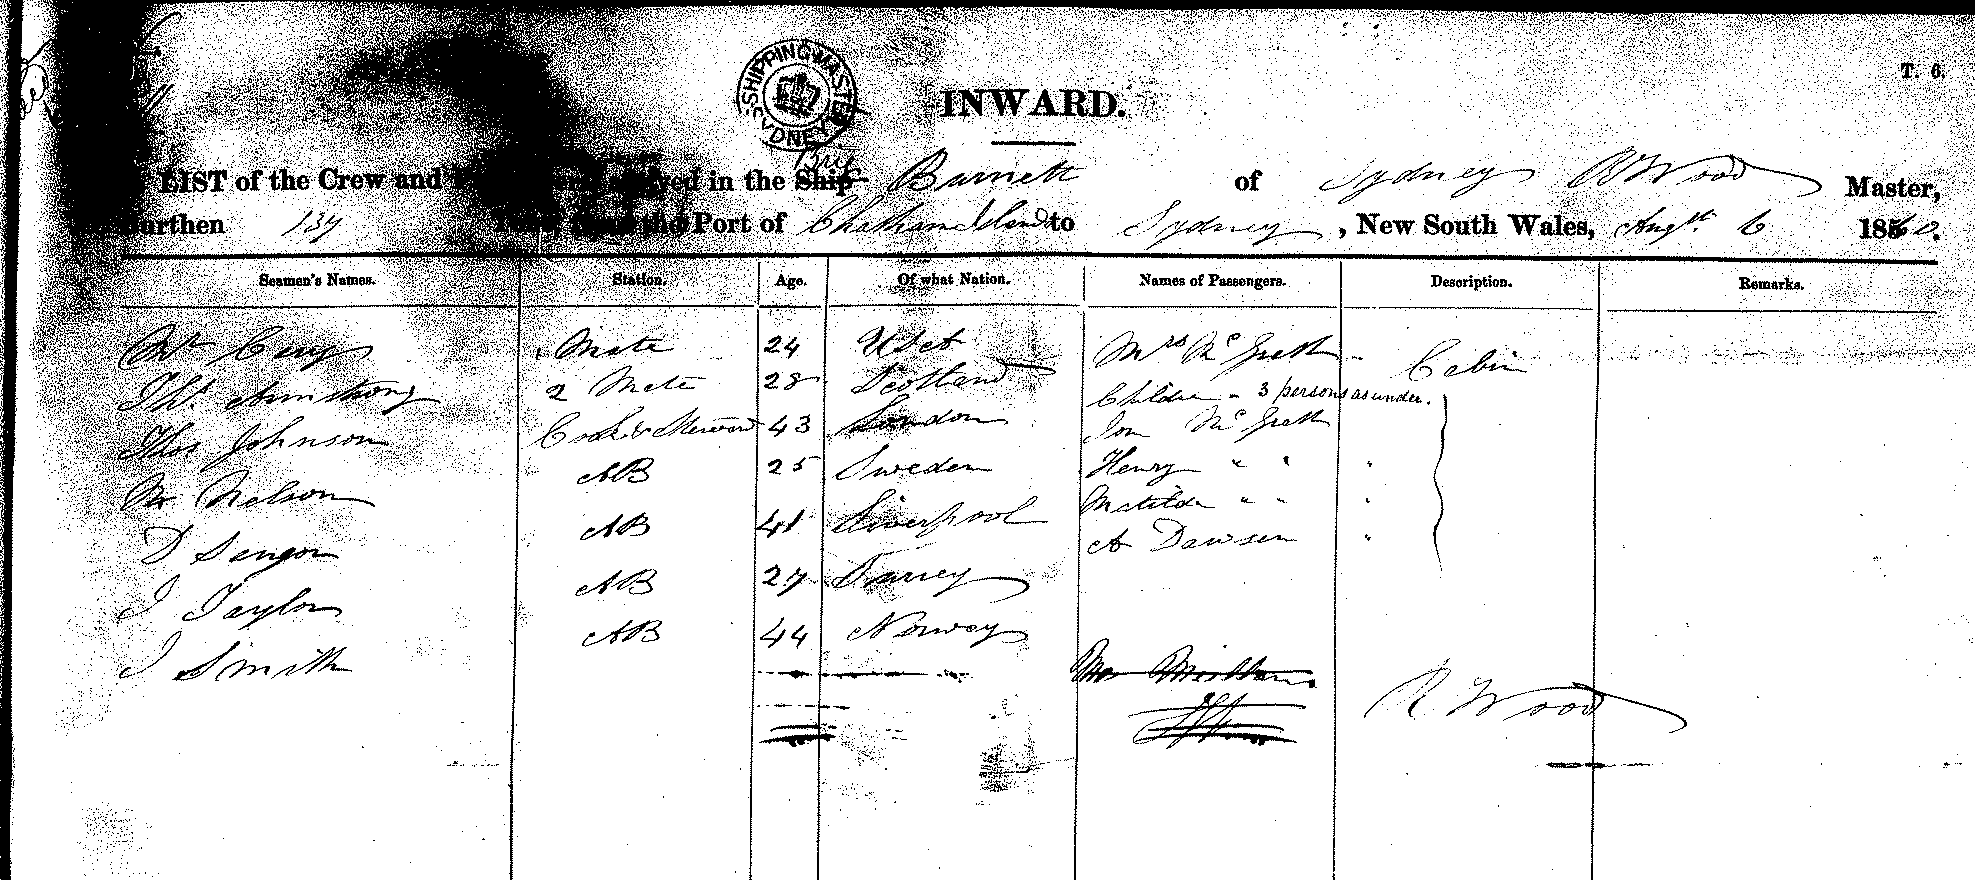 T. 6.
SHIPPING MASTER SYDNEY
INWARD.
Brig
LIST of the Crew and arrived in the Ship Burnett of Sydney R Wood Master,
Burthen 137 from the Port of Chatham Island to Sydney, New South Wales, Augst. 6 1860.
Seamen's Names. Station. Age. Of what Nation. Names of Passengers. Description. Remarks.
Wm 1 Mate 24 Mrs Mc Grath - Cabin
Thos. Armstrong 2 Mate 28 Scotland Children - 3 persons as under.
Thos Johnson Cook & Steward 43 London Jon Mc Grath
Nelson AB 25 Sweden Henry " "  "
D AB 41 Liverpool Matilda " "  "
J Taylor AB 27 A Dawson "
J Smith AB 44 Norway
R Wood